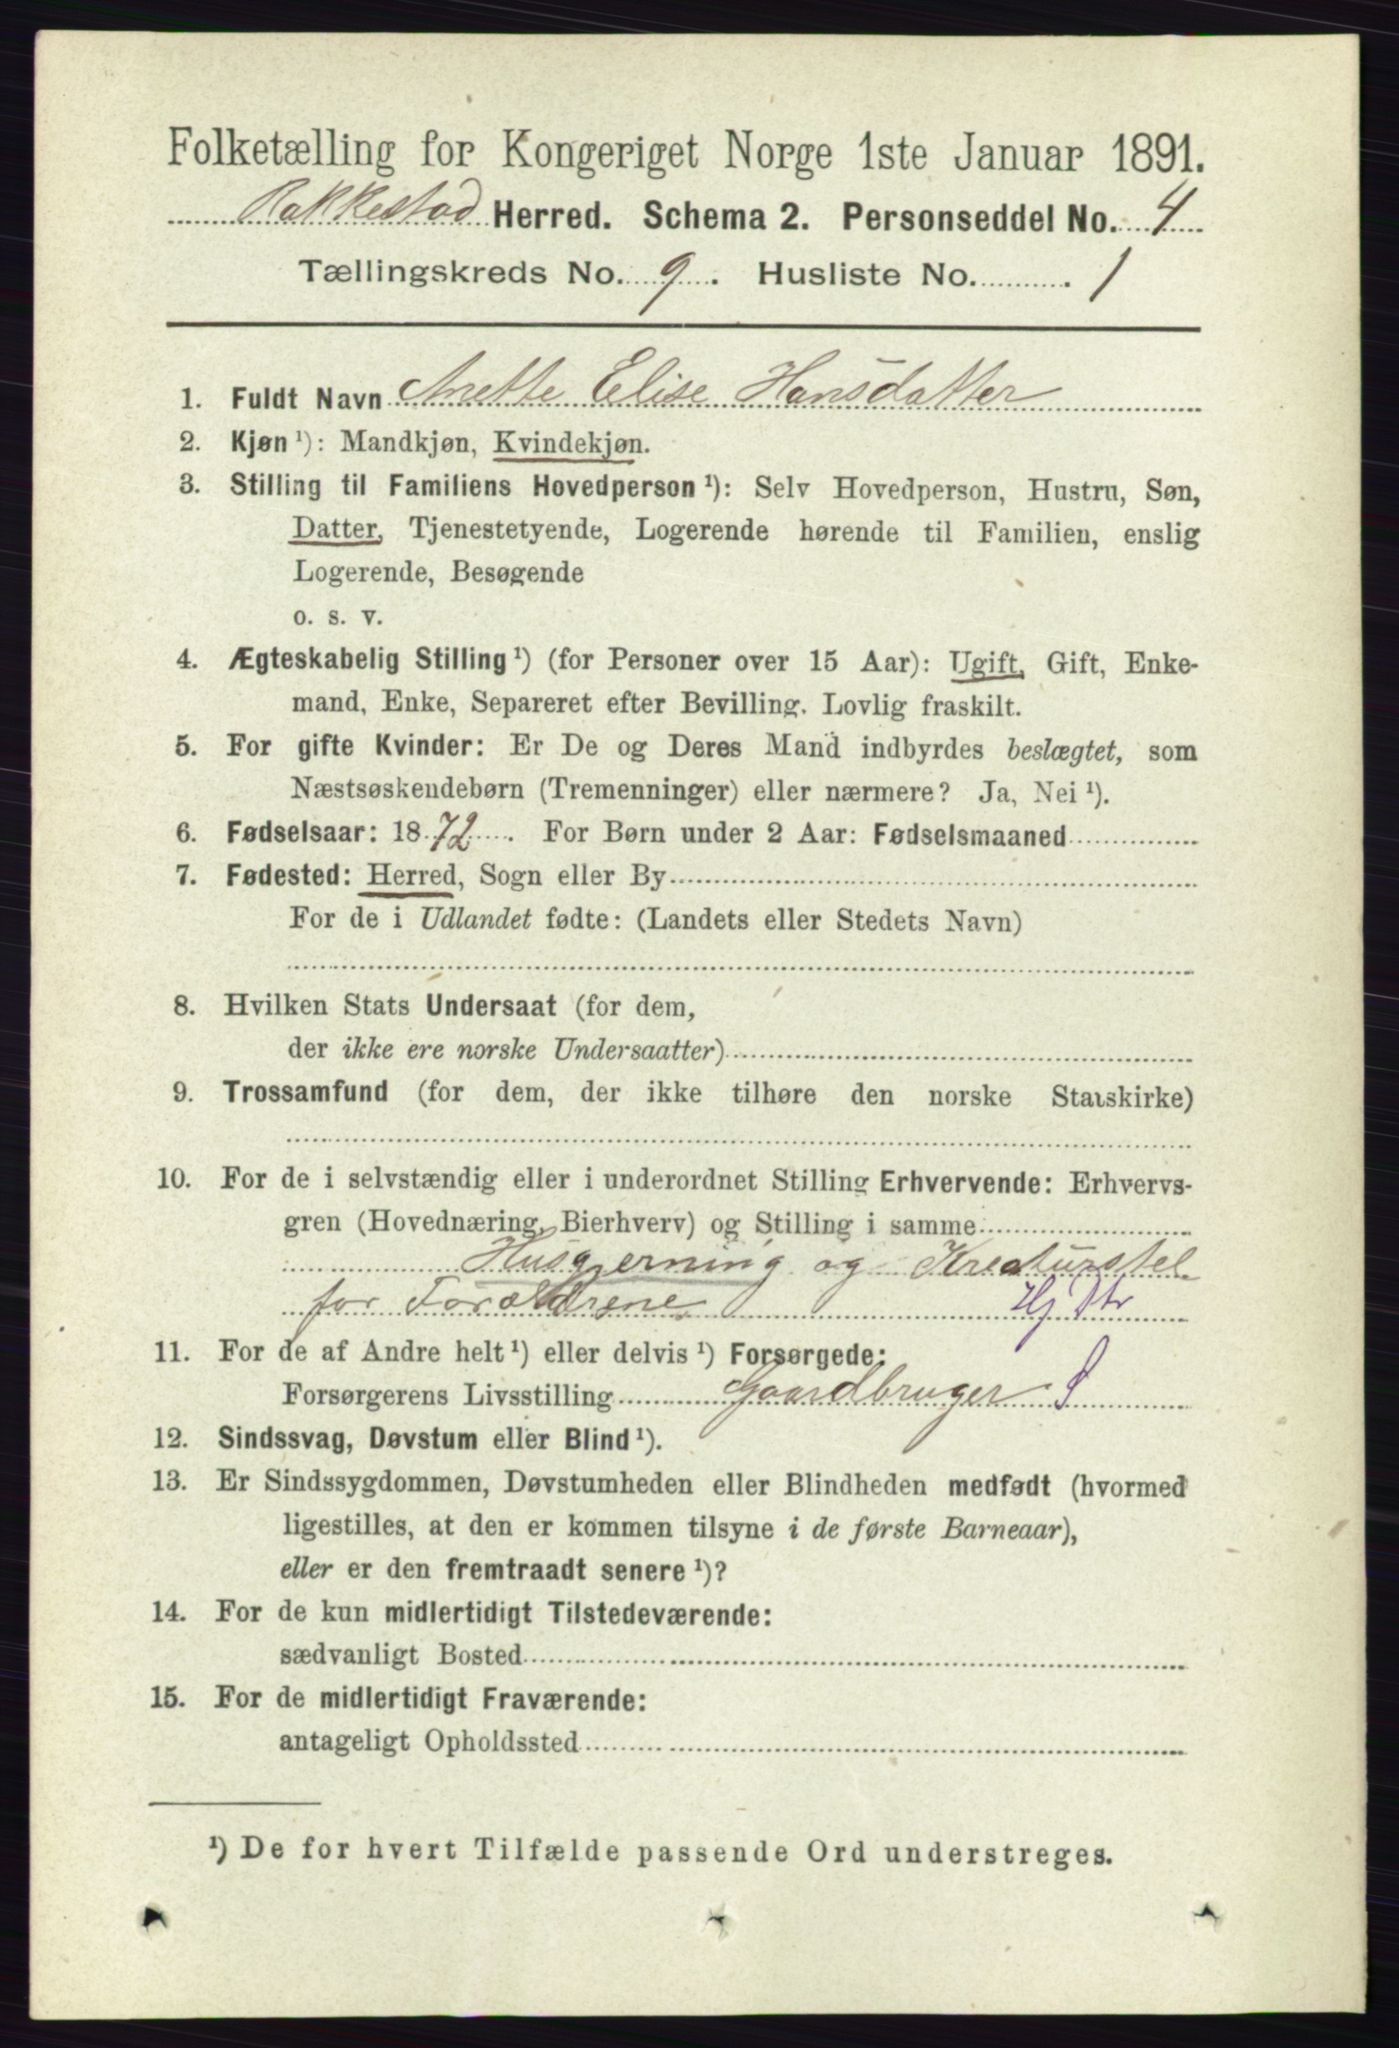 Folketælling for Kongeriget Norge 1ste Januar 1891.
Rakkestad Herred. Schema 2. Personseddel No. 4
Tællingskreds No. 9. Husliste No. 1
1. Fuldt Navn Anette Elise Hansdatter
2. Kjøn ¹): Mandkjøn, Kvindekjøn.
3. Stilling til Familiens Hovedperson ¹): Selv Hovedperson, Hustru, Søn,
Datter, Tjenestetyende, Logerende hørende til Familien, enslig
Logerende, Besøgende
o. s. v.
4. Ægteskabelig Stilling ¹) (for Personer over 15 Aar): Ugift, Gift, Enke-
mand, Enke, Separeret efter Bevilling. Lovlig fraskilt.
5. For gifte Kvinder: Er De og Deres Mand indbyrdes beslægtet, som
Næstsøskendebørn (Tremenninger) eller nærmere? Ja, Nei ¹).
6. Fødselsaar: 1872. For Børn under 2 Aar: Fødselsmaaned
7. Fødested: Herred, Sogn eller By
For de i Udlandet fødte: (Landets eller Stedets Navn)
8. Hvilken Stats Undersaat (for dem,
der ikke ere norske Undersaatter)
9. Trossamfund (for dem, der ikke tilhøre den norske Statskirke)
10. For de i selvstændig eller i underordnet Stilling Erhvervende: Erhvervs-
gren (Hovednæring, Bierhverv) og Stilling i samme
Husgjerning og Kreaturstel
for Forældrene Hj Dtr
11. For de af Andre helt ¹) eller delvis ¹) Forsørgede:
Forsørgerens Livsstilling Gaardbruger S
12. Sindssvag, Døvstum eller Blind ¹).
13. Er Sindssygdommen, Døvstumheden eller Blindheden medfødt (hvormed
ligestilles, at den er kommen tilsyne i de første Barneaar),
eller er den fremtraadt senere ¹)?
14. For de kun midlertidigt Tilstedeværende:
sædvanligt Bosted
15. For de midlertidigt Fraværende:
antageligt Opholdssted
¹) De for hvert Tilfælde passende Ord understreges.